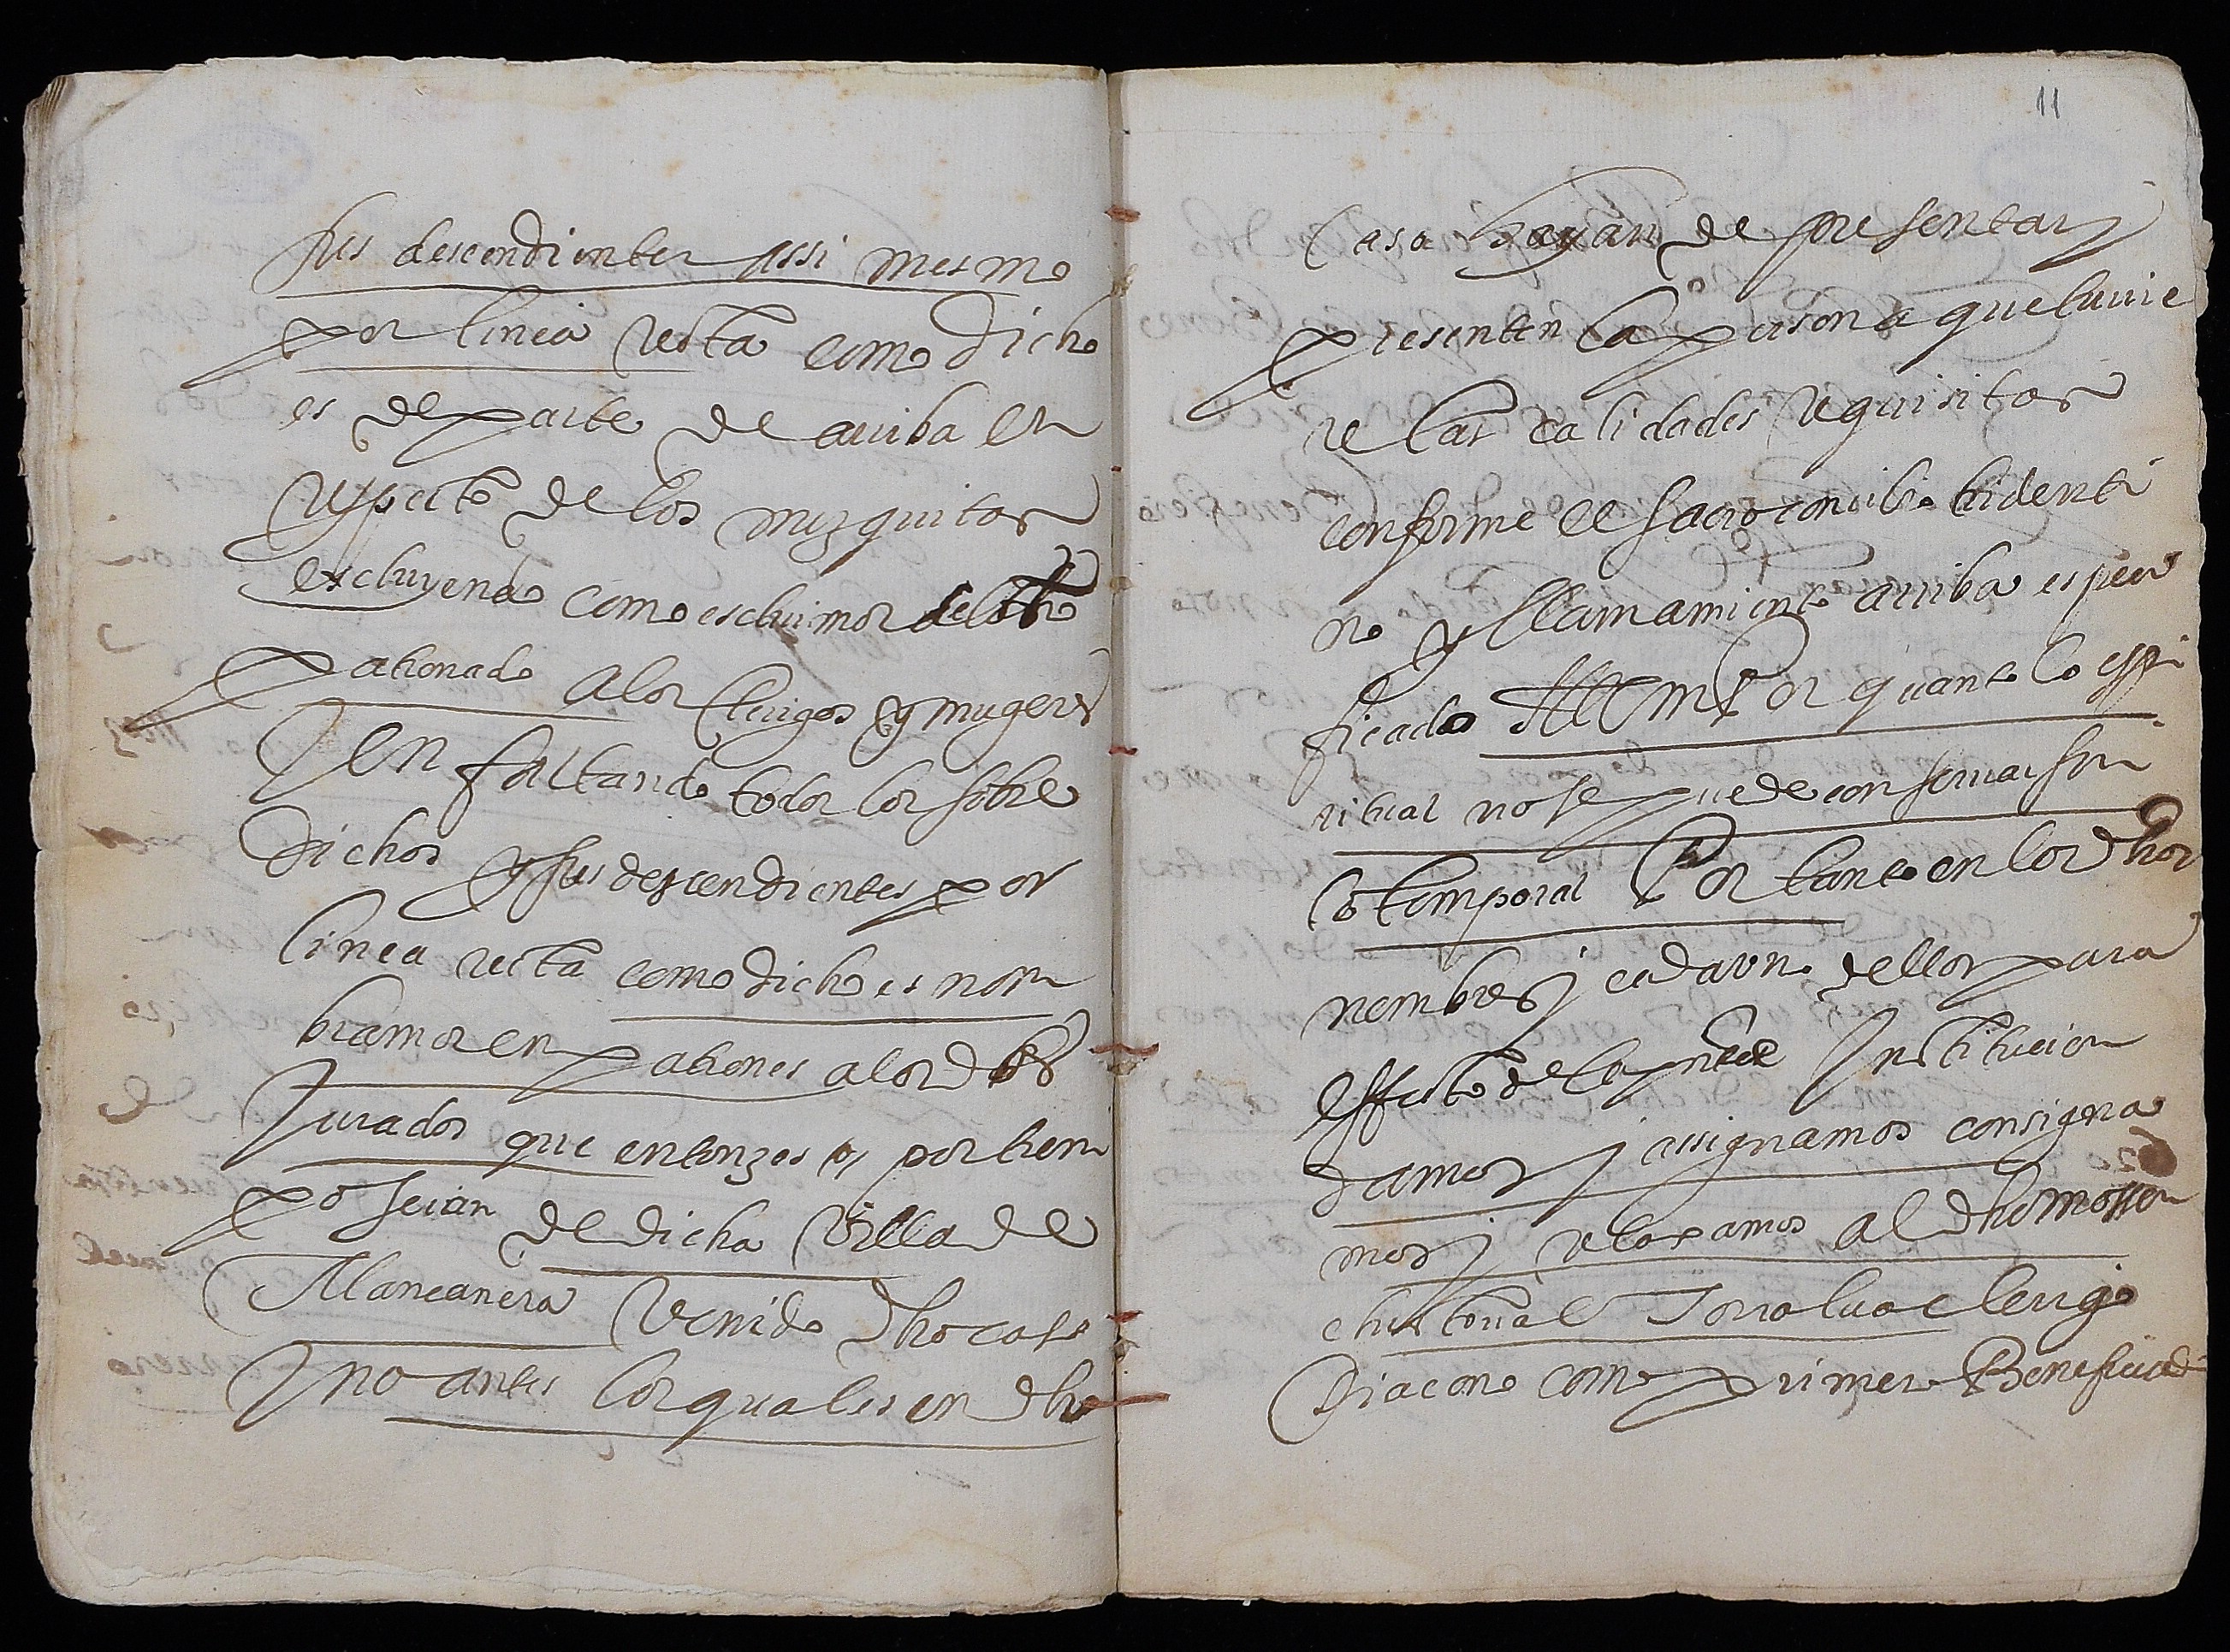 sus descendientes assi mesmo
por linea recta como dicho
es de parte de arriba en
respecto de los mezquitas
escluyendo como escluimos del dho
patronado a los clerigos y mugeres
J en faltando todos los sobre
dichos y sus descendientes por
linea recta como dicho es nom
bramos en patrones a los dhos
Jurados que entonzes o, por tiem
po seran de dicha Villa de
Mancanera Venido dho caso
J no antes los quales en dho
11
Caso hayan de presentar j
presenten la persona que tuuie
re las calidades requisitas
conforme el sacro concilio tridenti
no y llamamiento arriba especi
ficado Ittem Por quanto lo espi
ritual no se puede conseruar sin
lo temporal Por tanto en los dhos
nombres j cada vno dellos para
effecto de la pnte Institucion
damos j assignamos consigna
mos j relaxamos al dho mossen
christoual Torralua clerigo
Diacono como primero Beneficiad